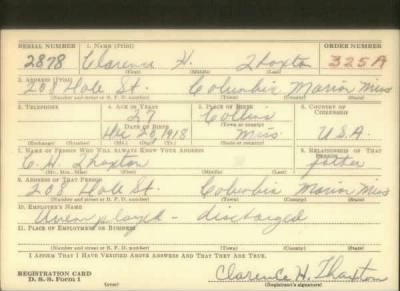 SERIAL NUMBER 1. NAME (Print) ORDER NUMBER
2878 Clarence H. Thaxton 325A
(First) (Middle) (Last)
2. ADDRESS (Print)
208 Hale St. Columbia Marion Miss
(Number and street or R. F. D. number) (Town) (County) (State)
3. TELEPHONE 4. AGE IN YEARS 5. PLACE OF BIRTH 6. COUNTRY OF CITIZENSHIP
Collins
DATE OF BIRTH (Town or county)
20, 1918 Miss. U.S.A.
(Exchange) (Number) (Mo.) (Day) (Yr.) (State or country)
7. NAME OF PERSON WHO WILL ALWAYS KNOW YOUR ADDRESS 8. RELATIONSHIP OF THAT PERSON
C. H. Thaxton father
(Mr., Mrs., Miss) (First) (Middle) (Last)
9. ADDRESS OF THAT PERSON
208 Hale St. Columbia Marion Miss
(Number and street or R. F. D. number) (Town) (County) (State)
10. EMPLOYER'S NAME
Unemployed - discharged
11. PLACE OF EMPLOYMENT OR BUSINESS
(Number and street or R. F. D. number) (Town) (County) (State)
I AFFIRM THAT I HAVE VERIFIED ABOVE ANSWERS AND THAT THEY ARE TRUE.
REGISTRATION CARD Clarence H. Thaxton
D. S. S. Form 1 (over) (Registrant's signature)